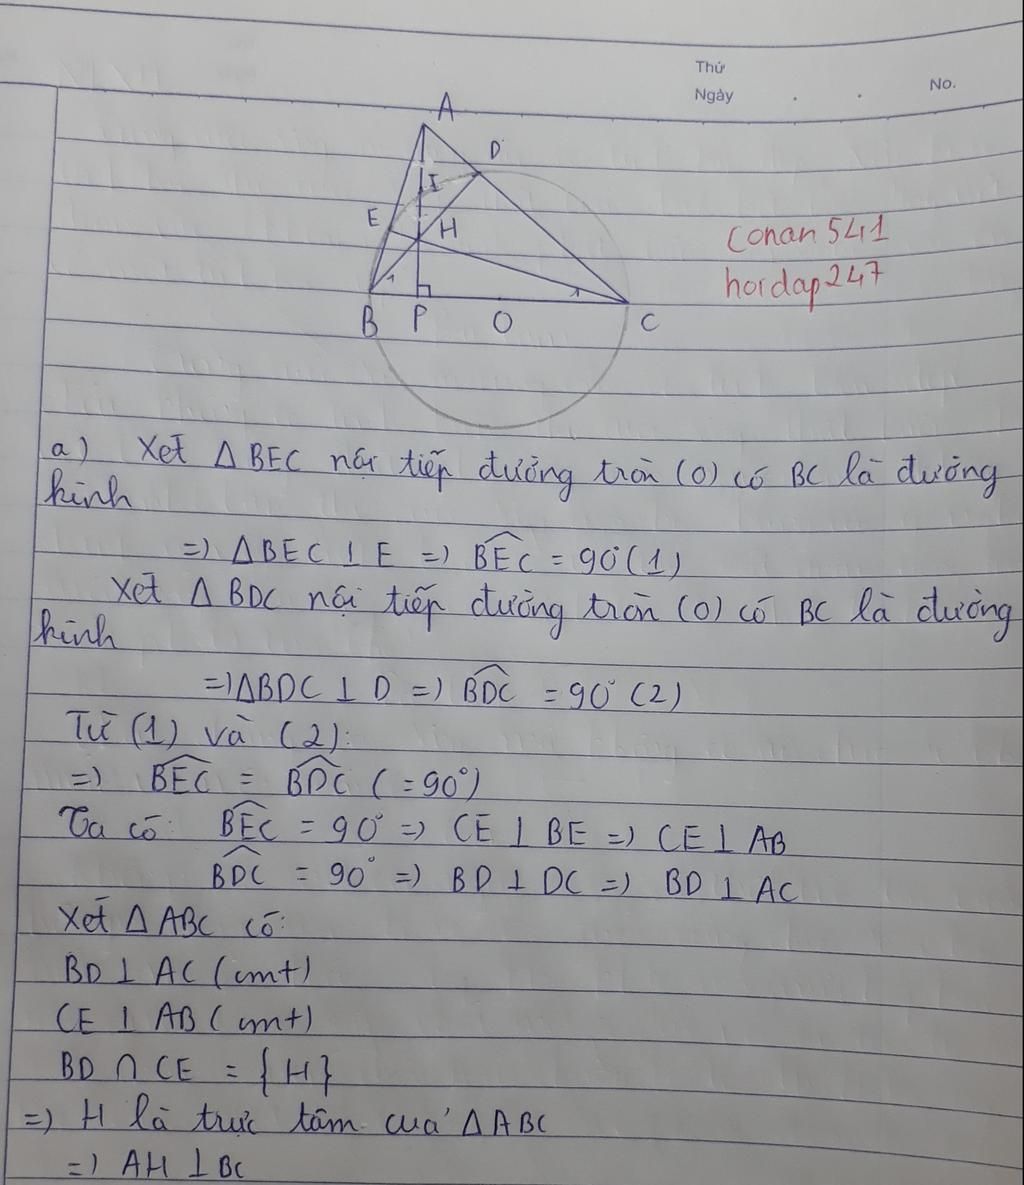 Thứ
Ngày . . No.
A
D
I
E
H
1
1
B P O C
Conan 541
hoidap247
a) Xét Δ BEC nội tiếp đường tròn (O) có BC là đường
kính
=) Δ BEC ⊥ E =) BEC = 90° (1)
Xét Δ BDC nội tiếp đường tròn (O) có BC là đường
kính
=) Δ BDC ⊥ D =) BDC = 90° (2)
Từ (1) và (2):
=) BEC = BDC (= 90°)
Ta có: BEC = 90° =) CE ⊥ BE =) CE ⊥ AB
BDC = 90° =) BD ⊥ DC =) BD ⊥ AC
Xét Δ ABC có:
BD ⊥ AC (cmt)
CE ⊥ AB (cmt)
BD ∩ CE = {H}
=) H là trực tâm của Δ ABC
=) AH ⊥ BC